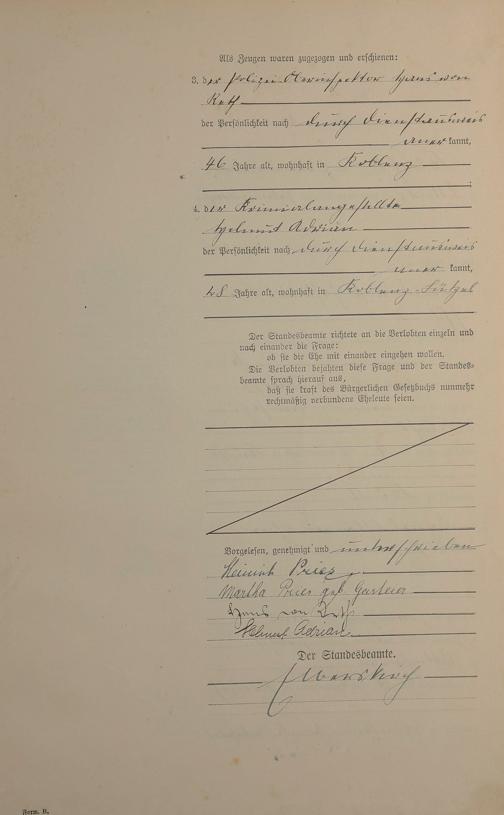 Als Zeugen waren zugezogen und erschienen:
3. der Polizei-Oberinspektor Hans von
Reth
der Persönlichkeit nach durch Dienstausweis
aner kannt,
46 Jahre alt, wohnhaft in Koblenz
;
4. der Kriminalangestellte
Helmut Adrian
der Persönlichkeit nach durch Dienstausweis
aner kannt,
48 Jahre alt, wohnhaft in Koblenz-Lützel
Der Standesbeamte richtete an die Verlobten einzeln und
nach einander die Frage:
ob sie die Ehe mit einander eingehen wollen.
Die Verlobten bejahten diese Frage und der Standes-
beamte sprach hierauf aus,
daß sie kraft des Bürgerlichen Gesetzbuchs nunmehr
rechtmäßig verbundene Eheleute seien.
Vorgelesen, genehmigt und unterschrieben
Heinrich Pries
Martha Pries geb.
Hans von Reth
Helmut Adrian
Der Standesbeamte.
Form. B.